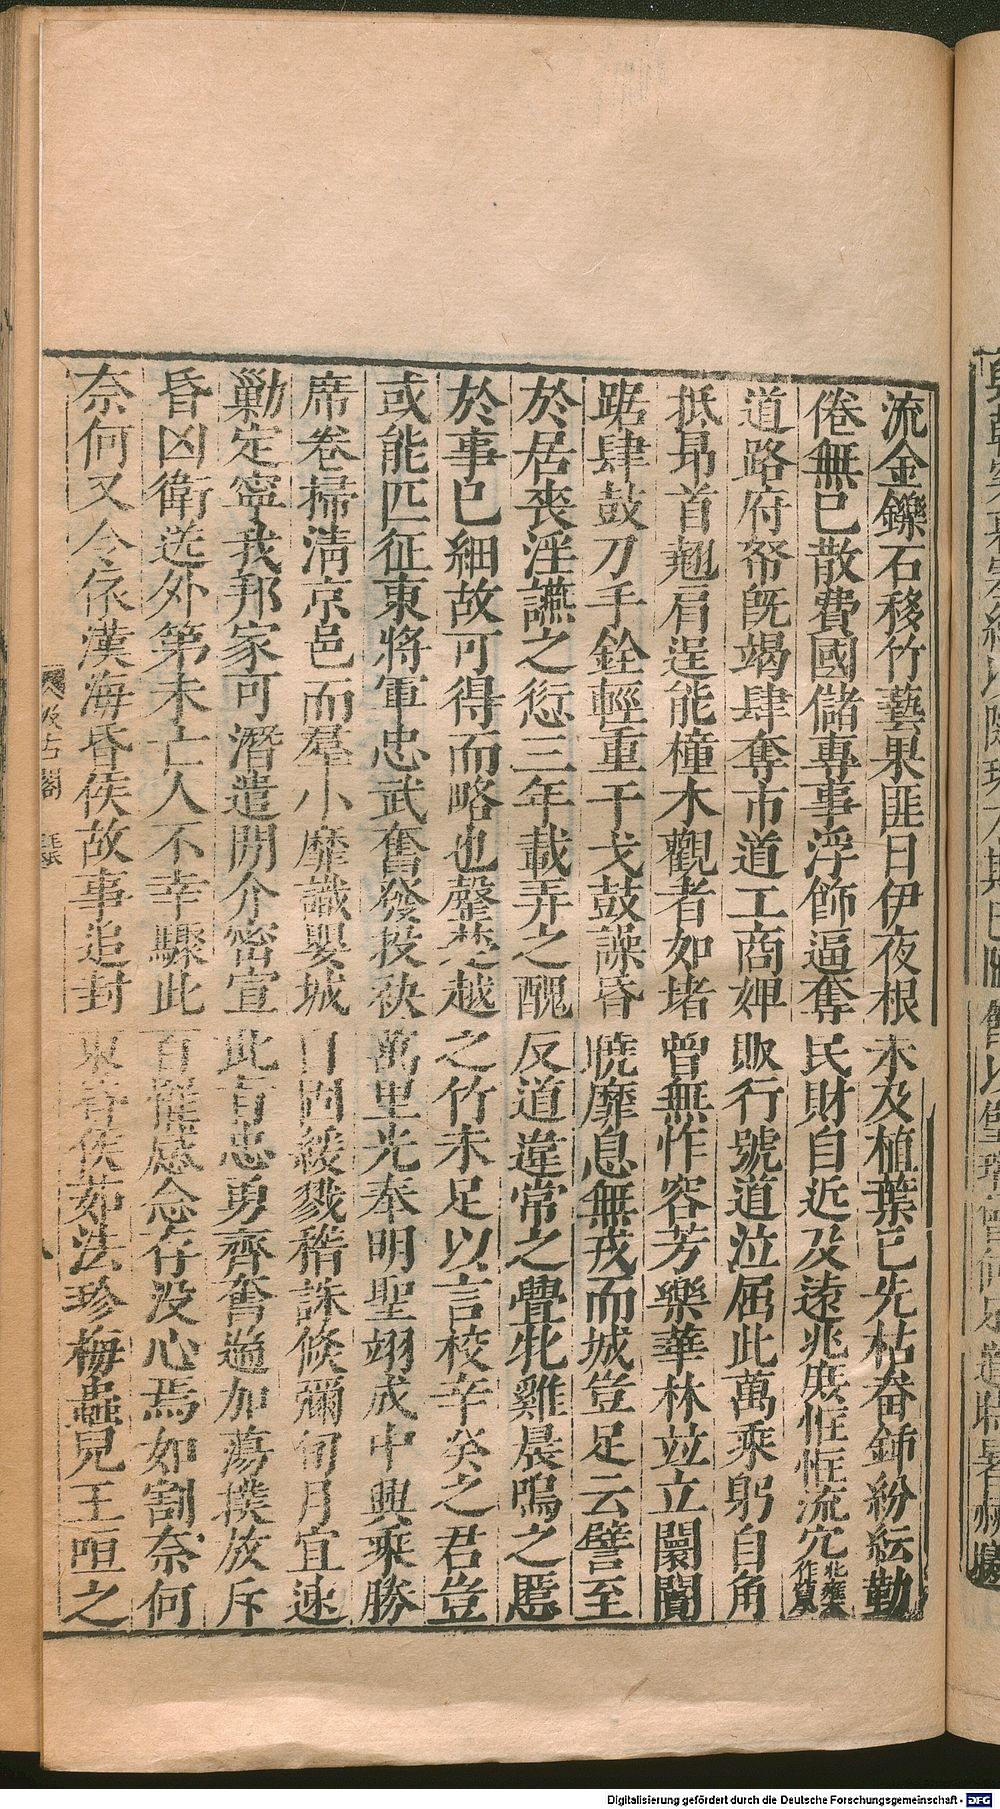 流金鑠石移竹藝果匪日伊夜根未及植葉已先枯畚鍤紛紜勤
倦無已散費國儲專事浮飾逼奪民財自近及遠兆庶恇恇流穴北雍作竄
道路府帑旣竭肆奪市道工商婢販行號道泣屈此萬乘躬自角
抵昻首翹肩逞能橦木觀者如堵曾無怍容芳樂華林竝立闤闠
踞肆鼓刀手銓輕重干戈鼓譟昏曉靡息無戎而城豈足云譬至
於居喪淫讌之愆三年載弄之醜反道違常之舋牝雞晨鳴之慝
於事已細故可得而略也罄楚越之竹未足以言校辛癸之君豈
或能匹征東將軍忠武奮發投袂萬里光奉明聖翊成中興乘勝
席卷掃淸京邑而羣小靡識嬰城自固緩戮稽誅倐彌旬月宜速
勦定寧我邦家可潛遣閒介密宣此旨忠勇齊奮遄加蕩撲放斥
昏凶衛送外第未亡人不幸驟此百罹感念存没心焉如割奈何
奈何又令依漢海昏侯故事追封東昏侯茹法珍梅蟲兒王咺之
汲古閣
八